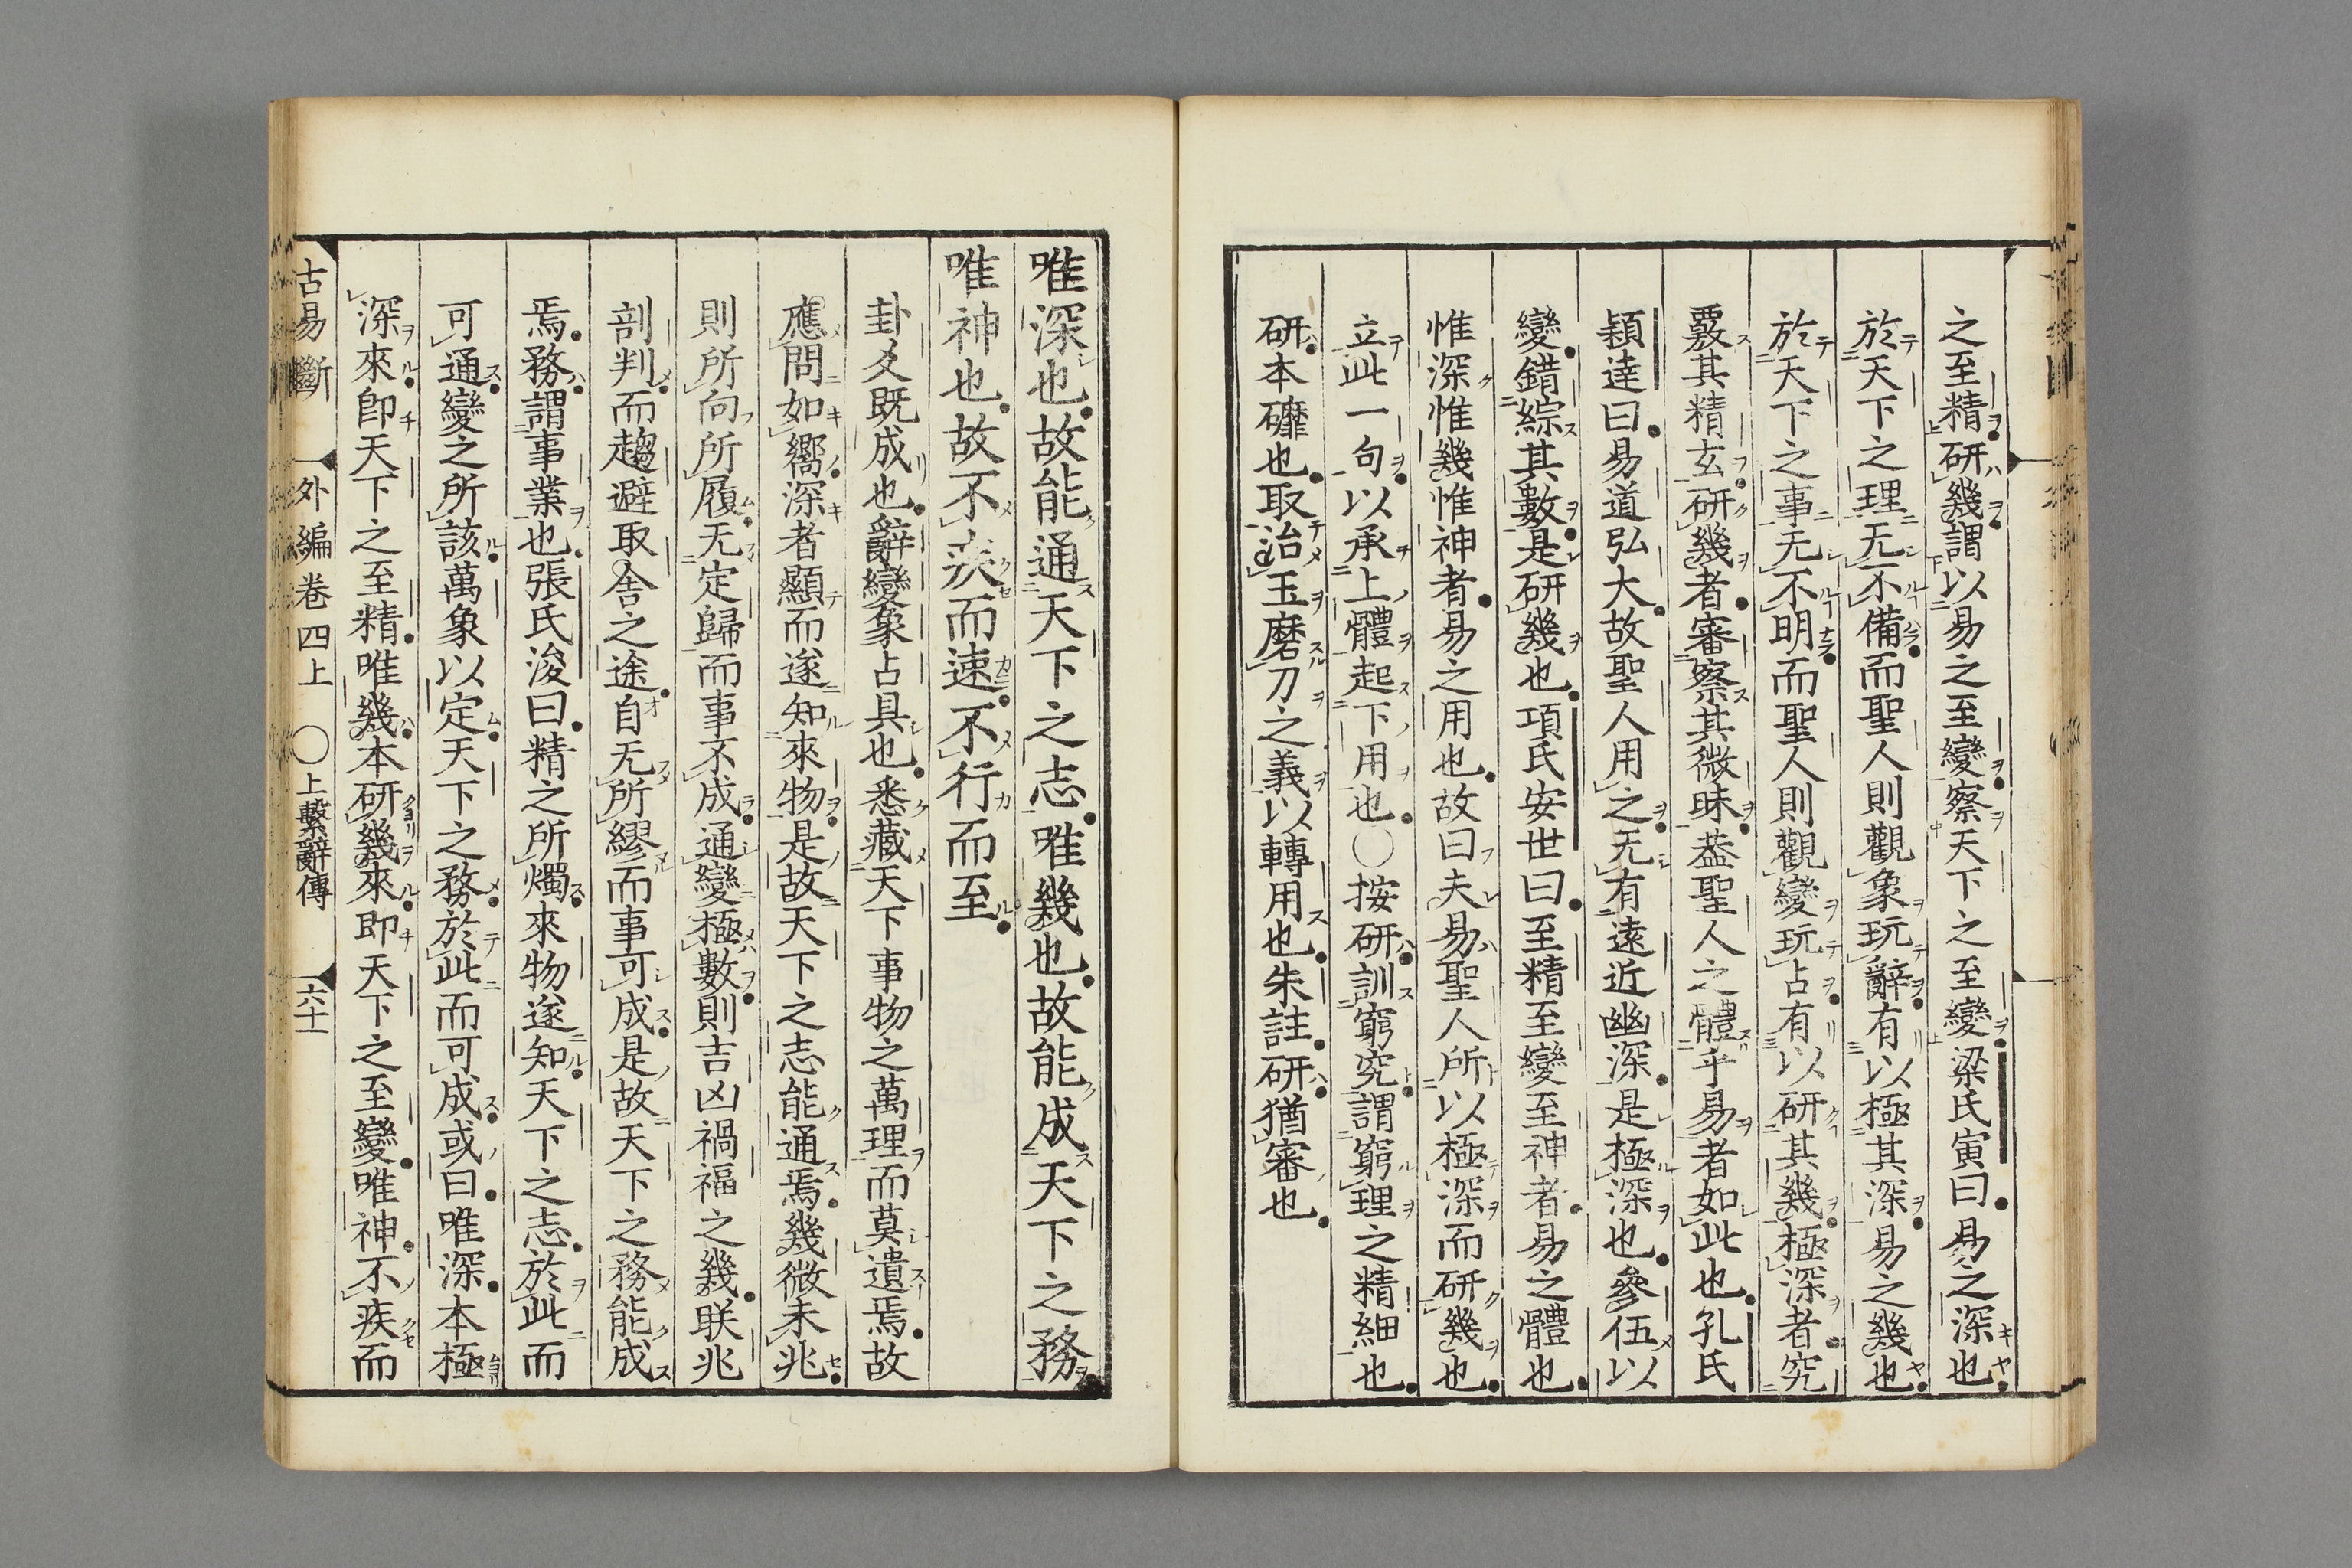 之至精研幾謂以易之至變察天下之至變梁氏寅曰易之深也
於天下之理无不備而聖人則觀象玩辭有以極其深易之幾也
於天下之事无不明而聖人則觀變玩占有以研其幾極深者究
覈其精玄研幾者審察其微昧葢聖人之體乎易者如此也孔氏
穎達曰易道弘大故聖人用之无有遠近幽深是極深也參伍以
變錯綜其數是研幾也項氏安世曰至精至變至神者易之體也
惟深惟幾惟神者易之用也故曰夫易聖人所以極深而研幾也
立此一句以承上體起下用也○按研訓窮究謂窮理之精細也
研本䃺也取治玉磨刀之義以轉用也朱註研猶審也
唯深也故能通天下之志唯幾也故能成天下之務
唯神也故不疾而速不行而至
卦爻既成也辭變象占具也悉藏天下事物之萬理而莫遺焉故
應問如嚮深者顯而遂知來物是故天下之志能通焉幾微未兆
則所向所履无定歸而事不成通變極數則吉凶禍福之幾朕兆
剖判而趨避取舍之途自无所繆而事可成是故天下之務能成
焉務謂事業也張氏浚曰精之所燭來物遂知天下之志於此而
可通變之所該萬象以定天下之務於此而可成或曰唯深本極
深來卽天下之至精唯幾本研幾來即天下之至變唯神不疾而
古易斷　外編卷四上　○上繫辭傳　六十